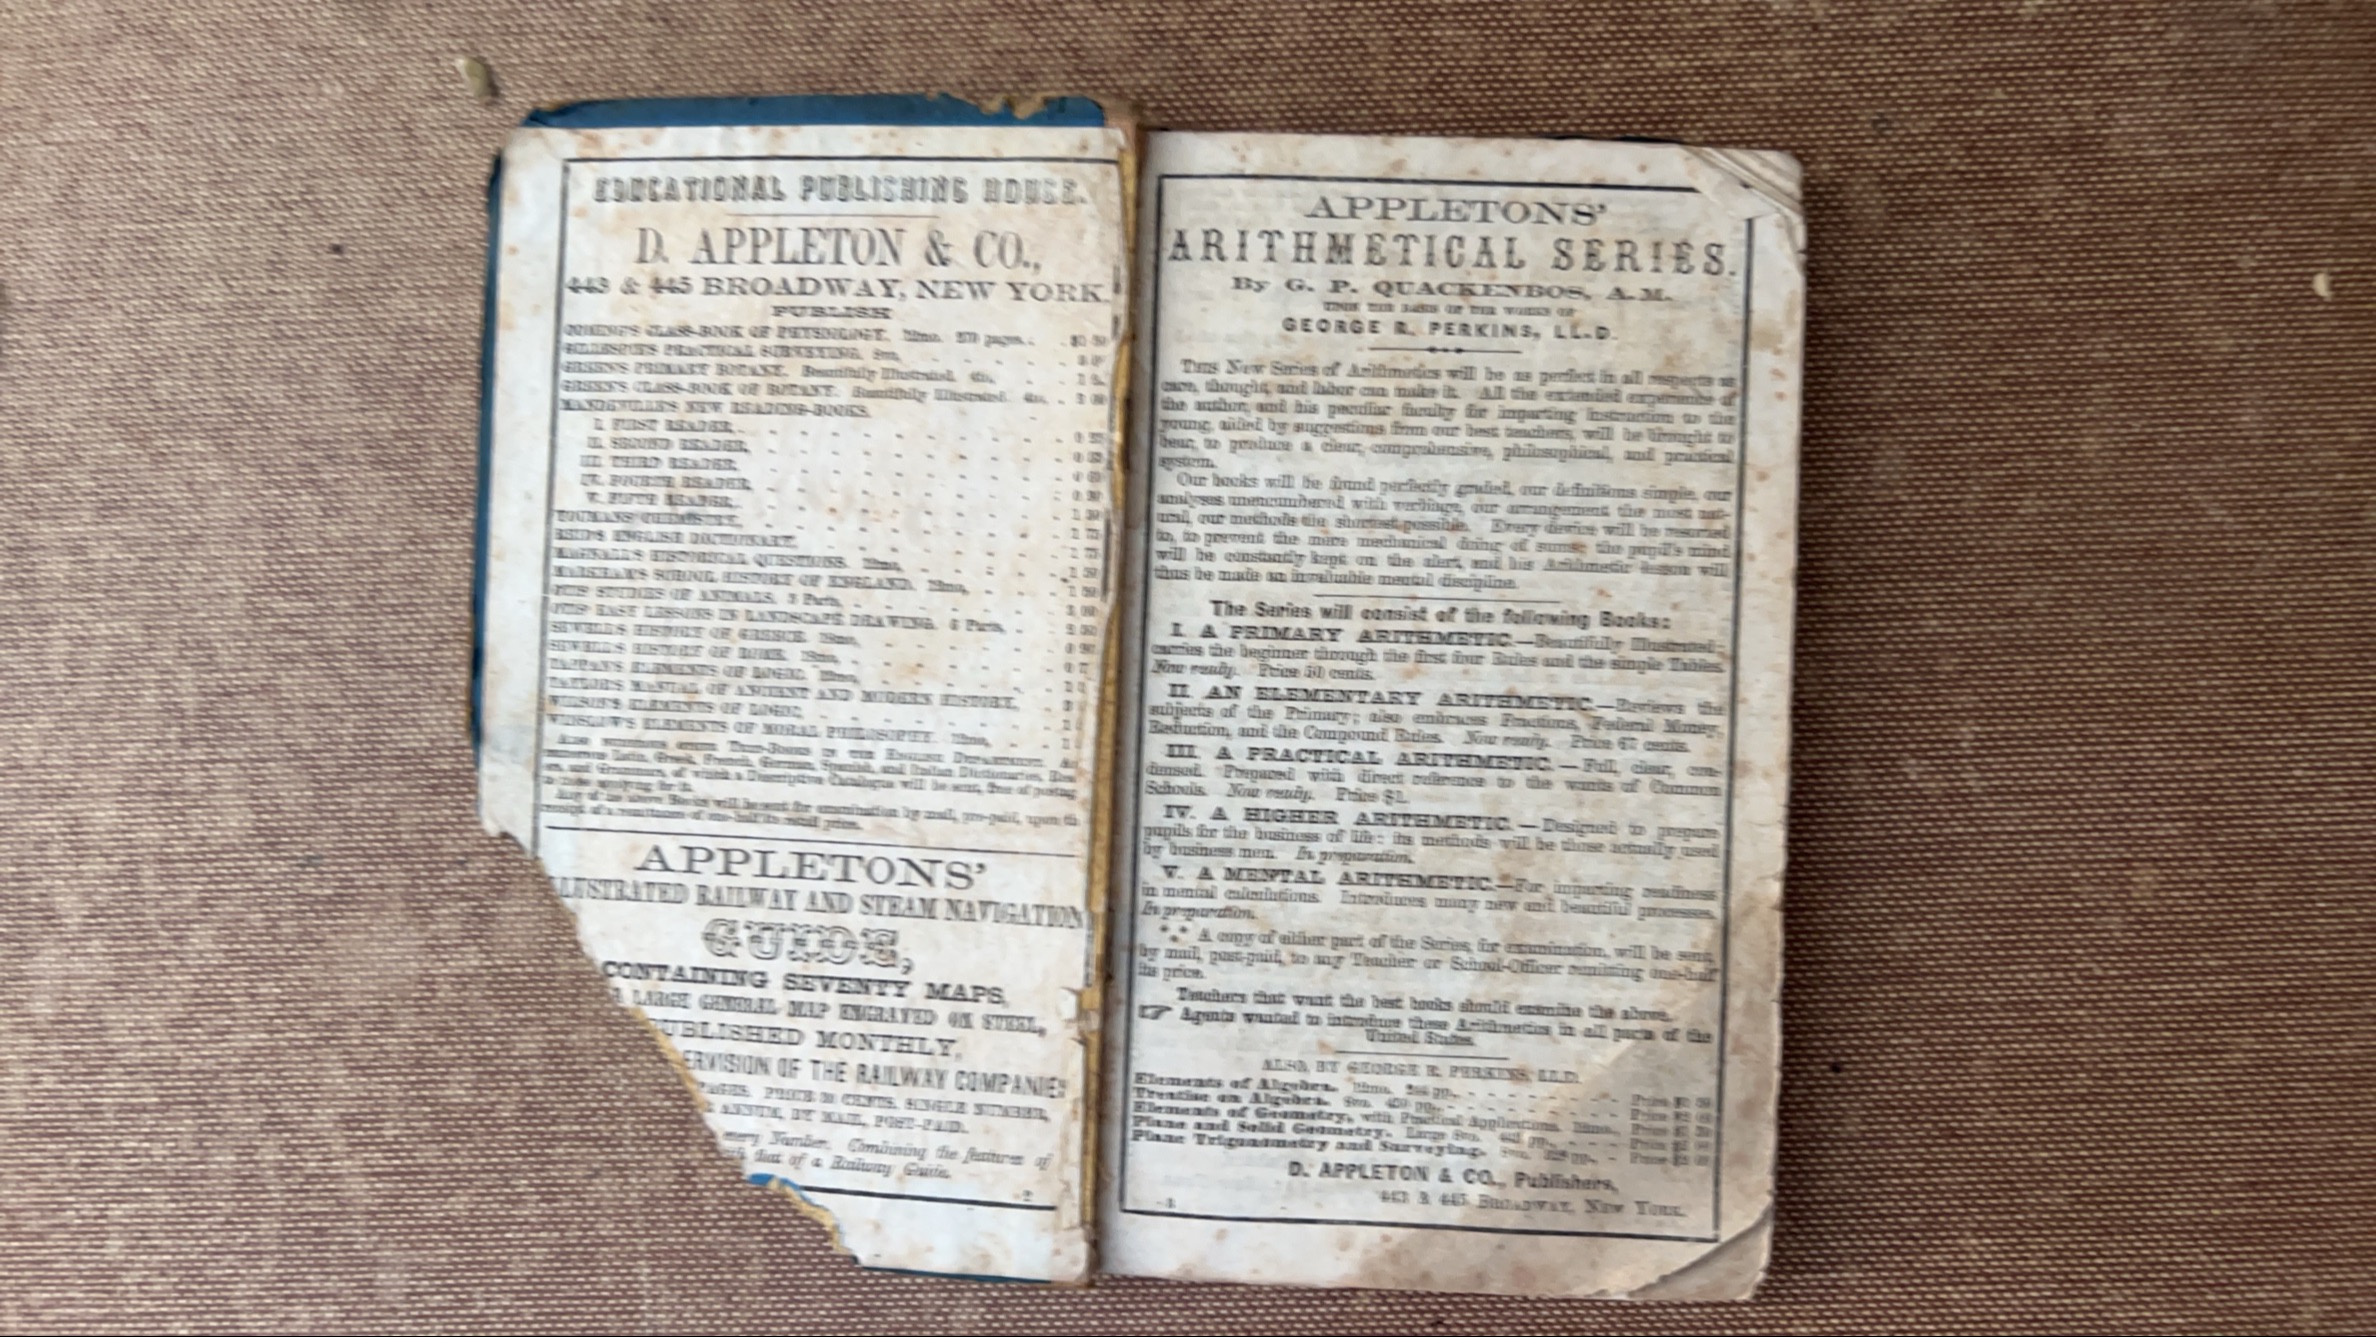 EDUCATIONAL PUBLISHING HOUSE.
D. APPLETON & CO.,
443 & 445 BROADWAY, NEW YORK.
PUBLISH
COMINGS CLASS-BOOK OF PHYSIOLOGY. 12mo. pages.
GILLESPIE'S PRACTICAL SURVEYING. 8vo.
GREEN'S PRIMARY BOTANY. Beautifully Illustrated. 4to.
GREEN'S CLASS-BOOK OF BOTANY. Beautifully Illustrated. 4to.
MANDEVILLE'S NEW READING-BOOKS.
I. FIRST READER,
II. SECOND READER,
III. THIRD READER,
IV. FOURTH READER,
V. FIFTH READER,
YOUMANS' CHEMISTRY.
REID'S ENGLISH DICTIONARY,
MAGNALL'S HISTORICAL QUESTIONS. 12mo,
MARKHAM'S SCHOOL HISTORY OF ENGLAND. 12mo,
OTIS' STUDIES OF ANIMALS. Parts,
OTIS' EASY LESSONS IN LANDSCAPE DRAWING. 6 Parts,
SEWELL'S HISTORY OF GREECE.
SEWELL'S HISTORY OF ROME.
TAPPAN'S ELEMENTS OF LOGIC. 12mo,
TAYLOR'S MANUAL OF ANCIENT AND MODERN HISTORY,
WILSON'S ELEMENTS OF LOGIC,
WINSLOW'S ELEMENTS OF MORAL PHILOSOPHY. 12mo,
Also numerous other Text-Books in the English Department. Al
Latin, Greek, French, German, Spanish, and Italian Dictionaries,
and Grammars, of which a Descriptive Catalogue will be sent, free of postag
applying for it.
Any of the above Books will be sent for examination by mail, pre-paid, upon th
receipt of a remittance of one-half its retail price.
APPLETONS'
LUSTRATED RAILWAY AND STEAM NAVIGATION
GUIDE,
CONTAINING SEVENTY MAPS,
LARGE GENERAL MAP ENGRAVED ON STEEL,
UBLISHED MONTHLY,
ERVISION OF THE RAILWAY COMPANIES
AGES. PRICE CENTS. SINGLE NUMBER,
ANNUM, BY MAIL, POST-PAID.
every Number. Combining the features of
that of a Railway Guide.
2
APPLETONS'
ARITHMETICAL SERIES.
By G. P. QUACKENBOS, A.M.
UPON THE BASIS OF THE WORKS OF
GEORGE R. PERKINS, LL.D.
This New Series of Arithmetics will be as perfect in all respects as
care, thought, and labor can make it. All the extended experience of
the author, and his peculiar faculty for imparting instruction to the
young, aided by suggestions from our best teachers, will be brought to
bear, to produce a clear, comprehensive, philosophical, and practical
system.
Our books will be found perfectly graded, our definitions simple, our
analyses unencumbered with verbiage, our arrangement the most nat-
ural, our methods the shortest possible. Every device will be resorted
to, to prevent the mere mechanical doing of sums; the pupil's mind
will be constantly kept on the alert, and his Arithmetic lesson will
thus be made an invaluable mental discipline.
The Series will consist of the following Books:
I. A PRIMARY ARITHMETIC.—Beautifully Illustrated;
carries the beginner through the first four Rules and the simple Tables.
Now ready. Price 50 cents.
II. AN ELEMENTARY ARITHMETIC.—Reviews the
subjects of the Primary; also embraces Fractions, Federal Money,
Reduction, and the Compound Rules. Now ready. Price 67 cents.
III. A PRACTICAL ARITHMETIC.—Full, clear, con-
densed. Prepared with direct reference to the wants of Common
Schools. Now ready. Price $1.
IV. A HIGHER ARITHMETIC.—Designed to prepare
pupils for the business of life: its methods will be those actually used
by business men. In preparation.
V. A MENTAL ARITHMETIC.—For imparting readiness
in mental calculations. Introduces many new and beautiful processes.
In preparation.
A copy of either part of the Series, for examination, will be sent,
by mail, post-paid, to any Teacher or School-Officer remitting one-half
its price.
Teachers that want the best books should examine the above.
☞ Agents wanted to introduce these Arithmetics in all parts of the
United States.
ALSO, BY GEORGE R. PERKINS, LL.D.
Elements of Algebra. 12mo. pp. Price
Treatise on Algebra. 8vo. pp. Price
Elements of Geometry, with Practical Applications. 12mo. Price
Plane and Solid Geometry. Large 8vo. pp. Price
Plane Trigonometry and Surveying. 8vo. pp. Price
D. APPLETON & CO., Publishers,
443 & 445 Broadway, New York.